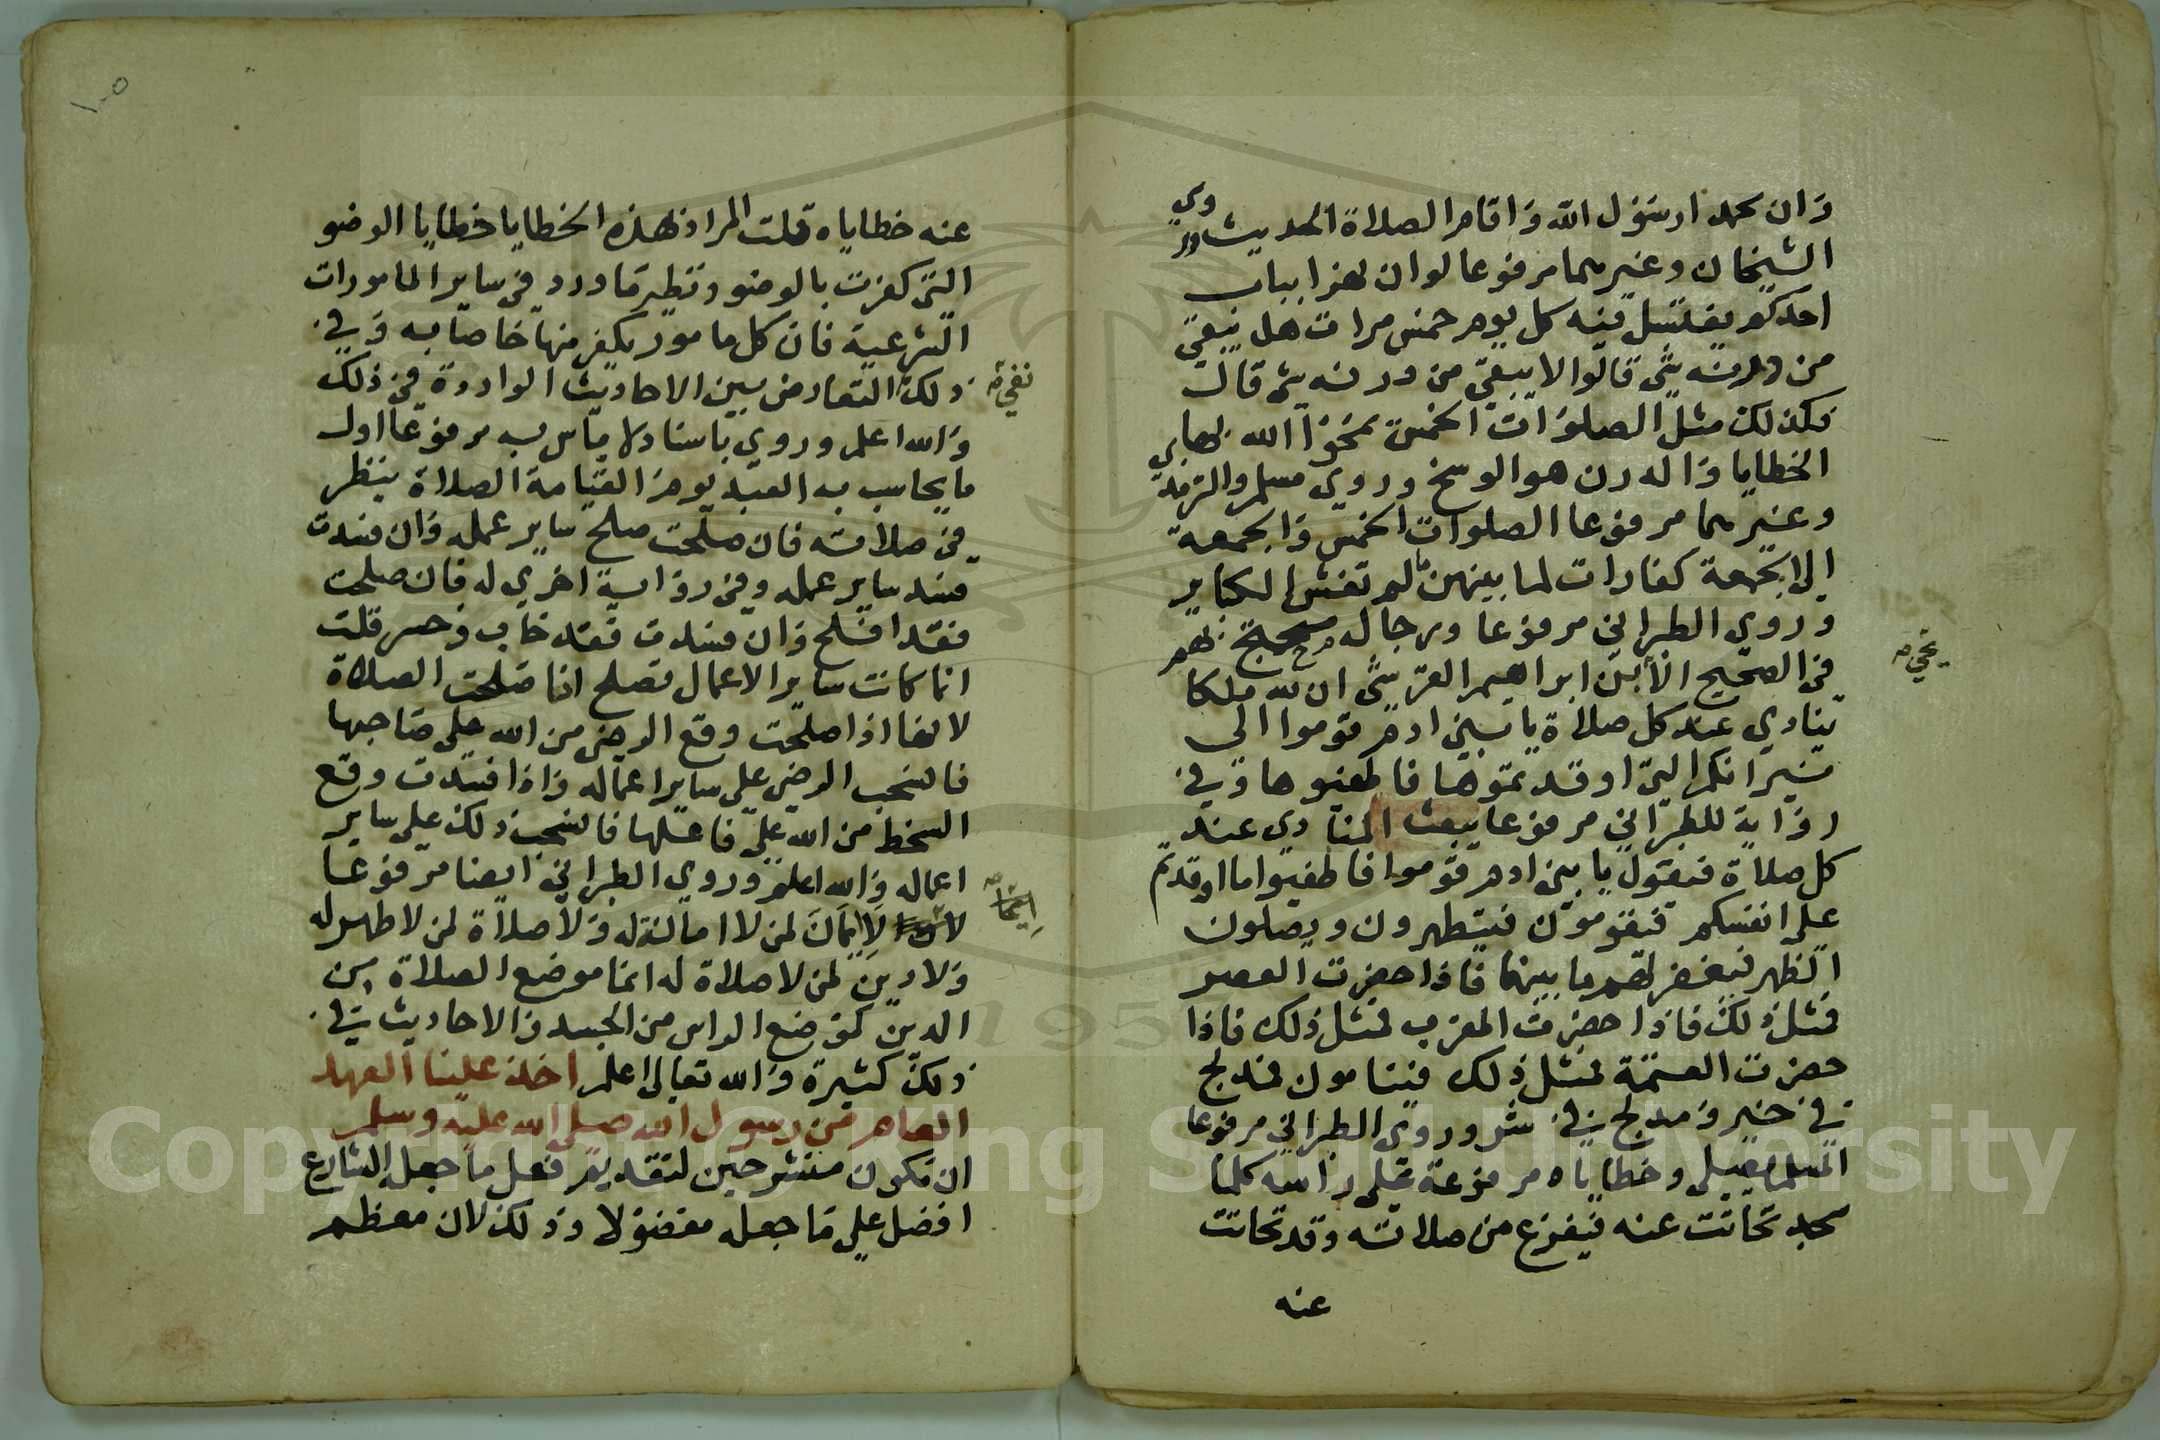 وان محمدا رسول الله واقام الصلاة الحديث وروي
الشيخان وغيرهما مرفوعا لو ان نهرا بباب
احدكم يغتسل فيه كل يوم خمس مرات هل يبقي
من درنه شي قالوا لا يبقي من درنه شي قال
فكذلك مثل الصلوات الخمس يمحوا الله بها
الخطايا والدرن هو الوسخ وروي مسلم والترمذي
وغيرهما مرفوعا الصلوات الخمس والجمعة
الي الجمعة كفارات لما بينهن ما لم تغش الكباير
وروي الطبراني مرفوعا ورجاله محتج بهم
في الصحيح الا يحيي بن ابراهيم القرشي ان لله ملكا
ينادي عند كل صلاة يا بني ادم قوموا الي
نيرانكم التي اوقدتموها فاطفيوها وفي
رواية للطبراني مرفوعا يبعث المنادي عند
كل صلاة فيقول يا بني ادم قوموا فاطفيوا ما اوقدتم
علي انفسكم فيقومون فيتطهرون ويصلون
الظهر فيغفر لهم ما بينهما فاذا حضرت العصر
فمثل ذلك فاذا حضرت المغرب فمثل ذلك فاذا
حضرت العتمة فمثل ذلك فينامون فمدلج
في خير ومدلج في شر وروي الطبراني مرفوعا
المسلم يصلي وخطاياه مرفوعة علي راسه كلما
سجد تحاتت عنه فيفرغ من صلاته وقد تحاتت
عنه
١٠٥
عنه خطاياه قلت المراد بهذه الخطايا خطايا الوضو
التي كفرت بالوضو ونظير ما ورد في ساير المامورات
الشرعية فان كل مامور يكفر منها خاصا به وفي
ذلك نفي التعارض بين الاحاديث الواردة في ذلك
والله اعلم وروي باسناد لا باس به مرفوعا اول
ما يحاسب به العبد يوم القيامة الصلاة ينظر
في صلاته فان صلحت صلح ساير عمله وان فسدت
فسد ساير عمله وفي رواية اخري له فان صلحت
فقد افلح وان فسدت فقد خاب وخسر قلت
انما كانت ساير الاعمال تصلح اذا صلحت الصلاة
لانها اذا صلحت وقع الرضي من الله علي صاحبها
فانسحب الرضي علي ساير اعماله واذا فسدت وقع
السخط من الله علي فاعلها فانسحب ذلك علي ساير
اعماله والله اعلم وروي الطبراني ايضا مرفوعا
لا ايمان لمن لا امانة له ولا صلاة لمن لا طهر له
ولا دين لمن لا صلاة له انما موضع الصلاة من
الدين كموضع الراس من الجسد والاحاديث في
ذلك كثيرة والله تعالي اعلم اخذ علينا العهد
العام من رسول الله صلي الله عليه وسلم
ان نكون منشرحين لتقديم فعل ما جعل الشارع
افضل علي ما جعله مفضولا وذلك لان معظم
Copyright © King Saud University
1957